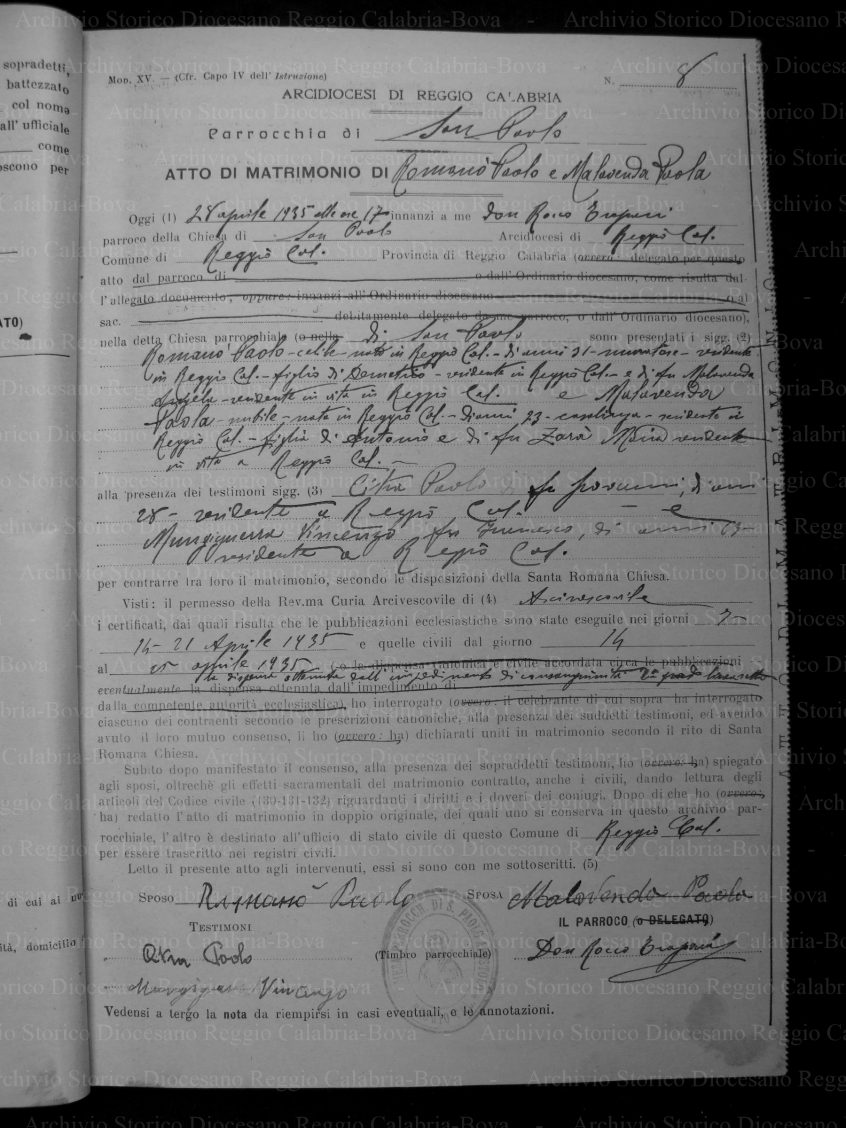 sopradetti,
battezzato
col nome
all'ufficiale
come
oscono per
ATO)
di cui ai
ità, domicilio
Mod. XV. — (Cfr. Capo IV dell'Istruzione)
N. 8
ARCIDIOCESI DI REGGIO CALABRIA
Parrocchia di San Paolo
ATTO DI MATRIMONIO DI Romanò Paolo e Malavenda Paola
Oggi (1) 28 aprile 1935 alle ore 17 innanzi a me Don Rocco Trapani
parroco della Chiesa di San Paolo Arcidiocesi di Reggio Cal.
Comune di Reggio Cal. Provincia di Reggio Calabria (ovvero: delegato per questo
atto dal parroco di o dall'Ordinario diocesano, come risulta dal-
l'allegato documento, oppure: innanzi all'Ordinario diocesano o al
sac. debitamente delegato da me parroco, o dall'Ordinario diocesano),
nella detta Chiesa parrocchiale (o nella di San Paolo sono presentati i sigg. (2)
Romanò Paolo - celibe - nato in Reggio Cal. - di anni 31 - muratore - residente
in Reggio Cal. - figlio di Demetrio - residente in Reggio Cal. - e di fu Malavenda
Angela - residente in vita in Reggio Cal. e Malavenda
Paola - nubile - nata in Reggio Cal. - di anni 23 - casalinga - residente a
Reggio Cal. - figlia di Antonio e di fu Zarà Maria residente
in vita a Reggio Cal. -
alla presenza dei testimoni sigg. (3) Citra Paolo fu Giovanni, di anni
28 - residente a Reggio Cal. - e
Mungiguerra Vincenzo fu Francesco, di anni
residente a Reggio Cal.
per contrarre tra loro il matrimonio, secondo le disposizioni della Santa Romana Chiesa.
Visti: il permesso della Rev.ma Curia Arcivescovile di (4) Arcivescovile
i certificati, dai quali risulta che le pubblicazioni ecclesiastiche sono state eseguite nei giorni 7 -
14 - 21 Aprile 1935 e quelle civili dal giorno 14
al 25 aprile 1935 (o la dispensa canonica e civile accordata circa le pubblicazioni
la dispensa ottenuta dall'impedimento di consanguinità
eventualmente la dispensa ottenuta dall'impedimento di
dalla competente autorità ecclesiastica), ho interrogato (ovvero: il celebrante di cui sopra ha interrogato
ciascuno dei contraenti secondo le prescrizioni canoniche, alla presenza dei suddetti testimoni, ed avendo
avuto il loro mutuo consenso, li ho (ovvero: ha) dichiarati uniti in matrimonio secondo il rito di Santa
Romana Chiesa.
Subito dopo manifestato il consenso, alla presenza dei sopraddetti testimoni, ho (ovvero: ha) spiegato
agli sposi, oltrechè gli effetti sacramentali del matrimonio contratto, anche i civili, dando lettura degli
articoli del Codice civile (130-131-132) riguardanti i diritti e i doveri dei coniugi. Dopo di che ho (ovvero:
ha) redatto l'atto di matrimonio in doppio originale, dei quali uno si conserva in questo archivio par-
rocchiale, l'altro è destinato all'ufficio di stato civile di questo Comune di Reggio Cal.
per essere trascritto nei registri civili.
Letto il presente atto agli intervenuti, essi si sono con me sottoscritti. (5)
SPOSO Romanò Paolo SPOSA Malavenda Paola
TESTIMONI
IL PARROCO (o DELEGATO)
Citra Paolo
(Timbro parrocchiale)
Don Rocco Trapani
Vincenzo
Vedensi a tergo la nota da riempirsi in casi eventuali, e le annotazioni.
ATTO DI MATRIMONIO
Archivio Storico Diocesano Reggio Calabria-Bova